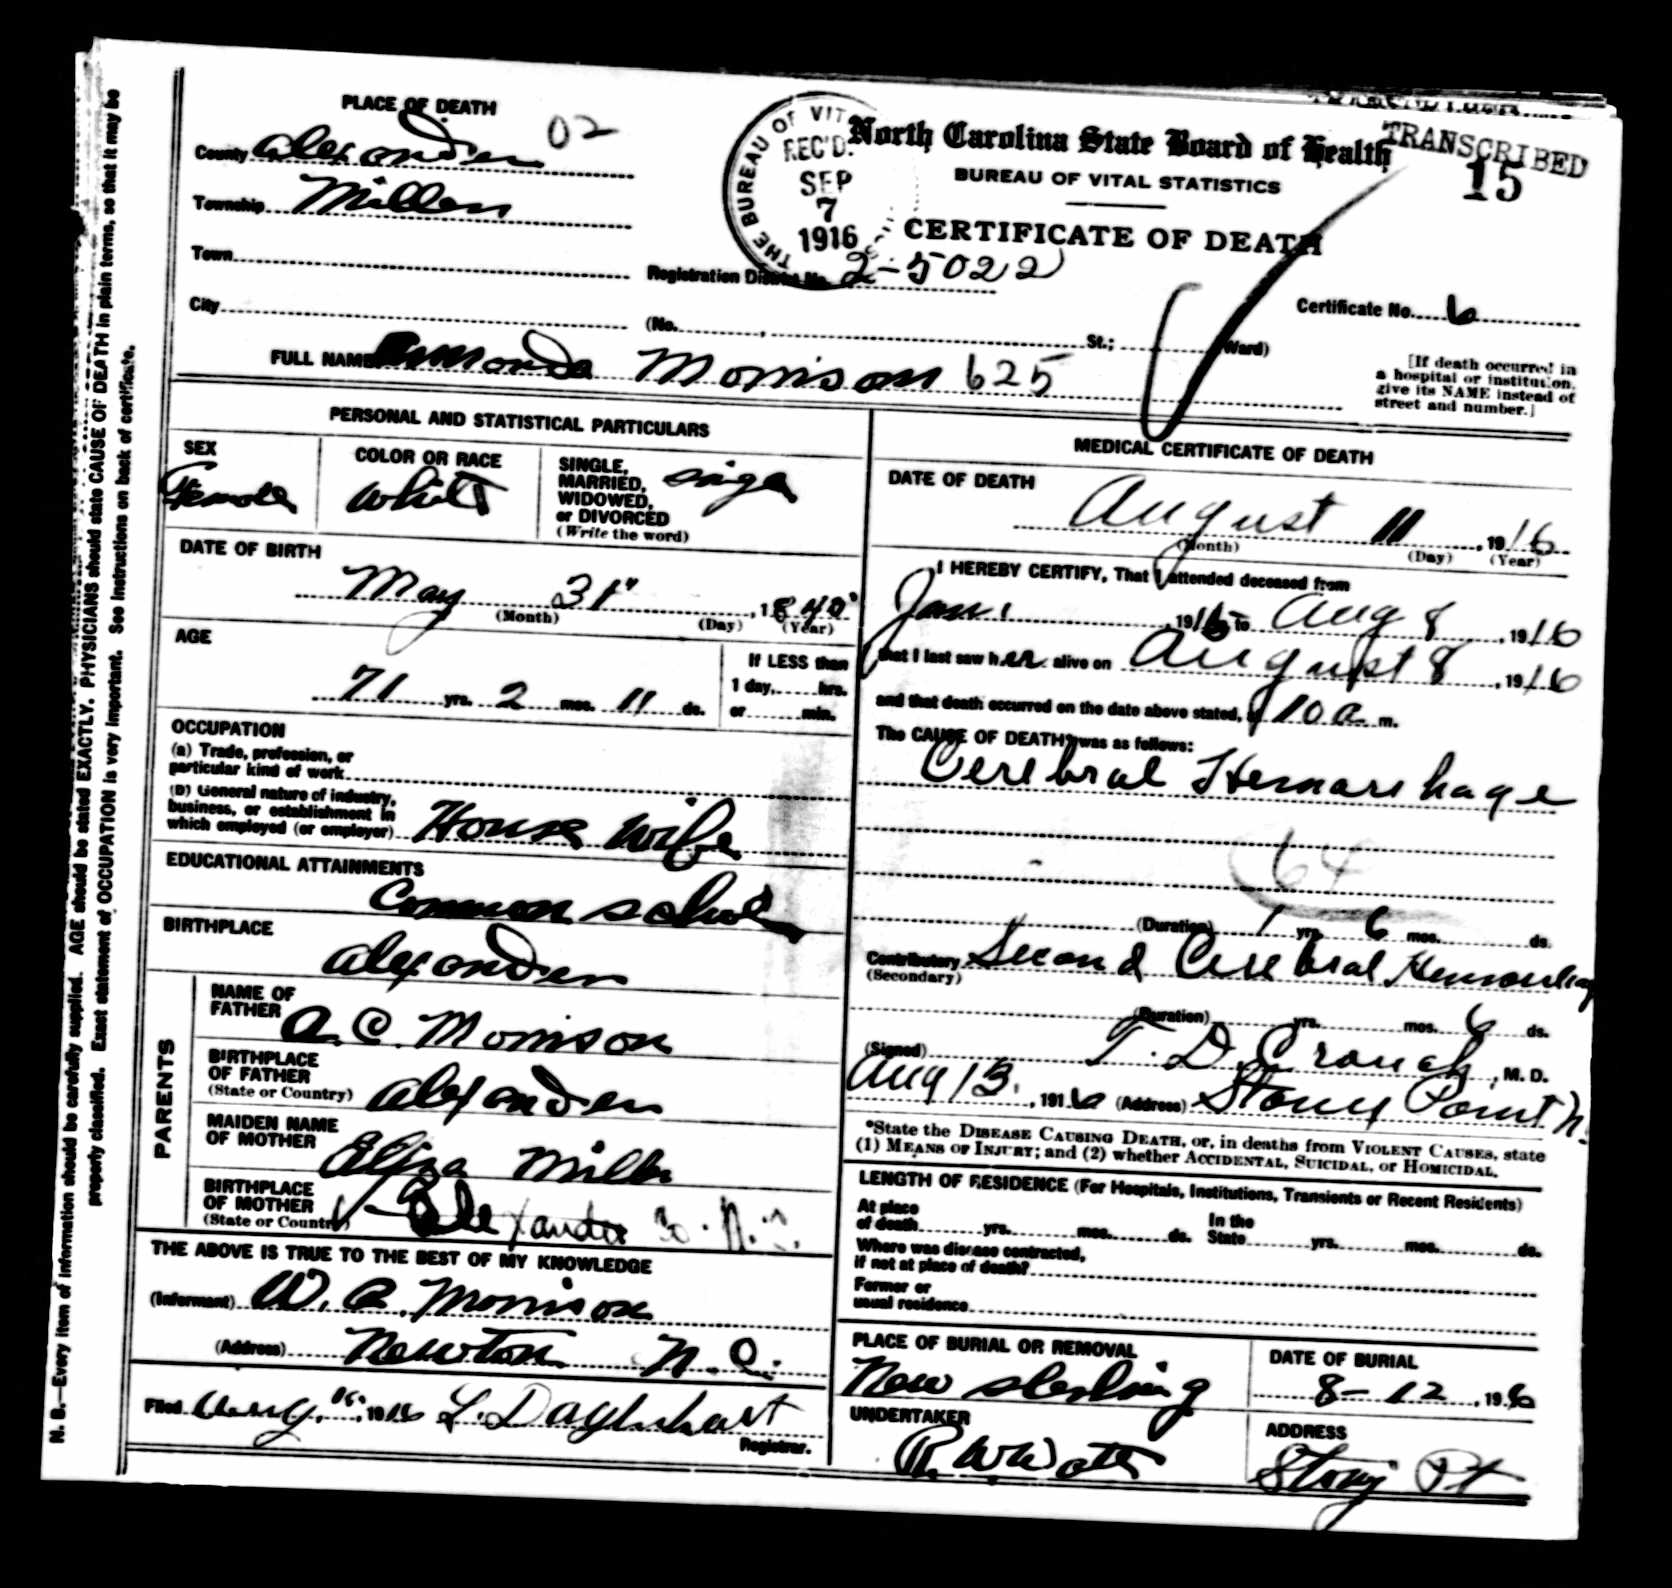 TRANSCRIBED
15
PLACE OF DEATH
02
County Alexander
Township Miller
Town
City
THE BUREAU OF VIT
REC'D.
SEP
7
1916
North Carolina State Board of Health
BUREAU OF VITAL STATISTICS
CERTIFICATE OF DEATH
Registration District No. 2-5022
Certificate No. 6
(No. , St.; Ward)
[If death occurred in
a hospital or institution,
give its NAME instead of
street and number.]
FULL NAME Amonda Morrison 625
PERSONAL AND STATISTICAL PARTICULARS
SEX
Female
COLOR OR RACE
White
SINGLE,
MARRIED,
WIDOWED,
or DIVORCED
(Write the word)
Single
DATE OF BIRTH
May 31" , 184
(Month) (Day) (Year)
AGE
71 yrs. 2 mos. 11 ds.
If LESS than
1 day, hrs.
or min.
OCCUPATION
(a) Trade, profession, or
particular kind of work
(b) General nature of industry,
business, or establishment in
which employed (or employer) House wife
EDUCATIONAL ATTAINMENTS
Common school
BIRTHPLACE
Alexander
PARENTS
NAME OF
FATHER A. C. Morrison
BIRTHPLACE
OF FATHER
(State or Country) Alexander
MAIDEN NAME
OF MOTHER Eliza Miller
BIRTHPLACE
OF MOTHER
(State or Country) Alexander Co. N.C.
THE ABOVE IS TRUE TO THE BEST OF MY KNOWLEDGE
(Informant) W. A. Morrison
(Address) Newton N.C.
Filed Aug. , 1916 L. Daghnhart
Registrar.
MEDICAL CERTIFICATE OF DEATH
DATE OF DEATH
August 11 , 1916
(Month) (Day) (Year)
I HEREBY CERTIFY, That I attended deceased from
Jan. 1 , 1916 to Aug 8 , 1916
that I last saw her alive on August 8 , 1916
and that death occurred on the date above stated, at 10 a m.
The CAUSE OF DEATH* was as follows:
Cerebral Hemorrhage
64
(Duration) 1 yrs. 6 mos. ds.
Contributory Second Cerebral Hemorrhage
(Secondary)
(Duration) yrs. mos. 6 ds.
(Signed) T. D. Crouch , M. D.
Aug 13, , 1916 (Address) Stony Point N.
*State the DISEASE CAUSING DEATH, or, in deaths from VIOLENT CAUSES, state
(1) MEANS OF INJURY; and (2) whether ACCIDENTAL, SUICIDAL, or HOMICIDAL.
LENGTH OF RESIDENCE (For Hospitals, Institutions, Transients or Recent Residents)
At place
of death yrs. mos. ds. In the
State yrs. mos. ds.
Where was disease contracted,
if not at place of death?
Former or
usual residence
PLACE OF BURIAL OR REMOVAL
New Sterling
DATE OF BURIAL
8-12 , 1916
UNDERTAKER
R. W. Watts
ADDRESS
Stony Pt
N. B.—Every item of information should be carefully supplied. AGE should be stated EXACTLY. PHYSICIANS should state CAUSE OF DEATH in plain terms, so that it may be
properly classified. Exact statement of OCCUPATION is very important. See instructions on back of certificate.